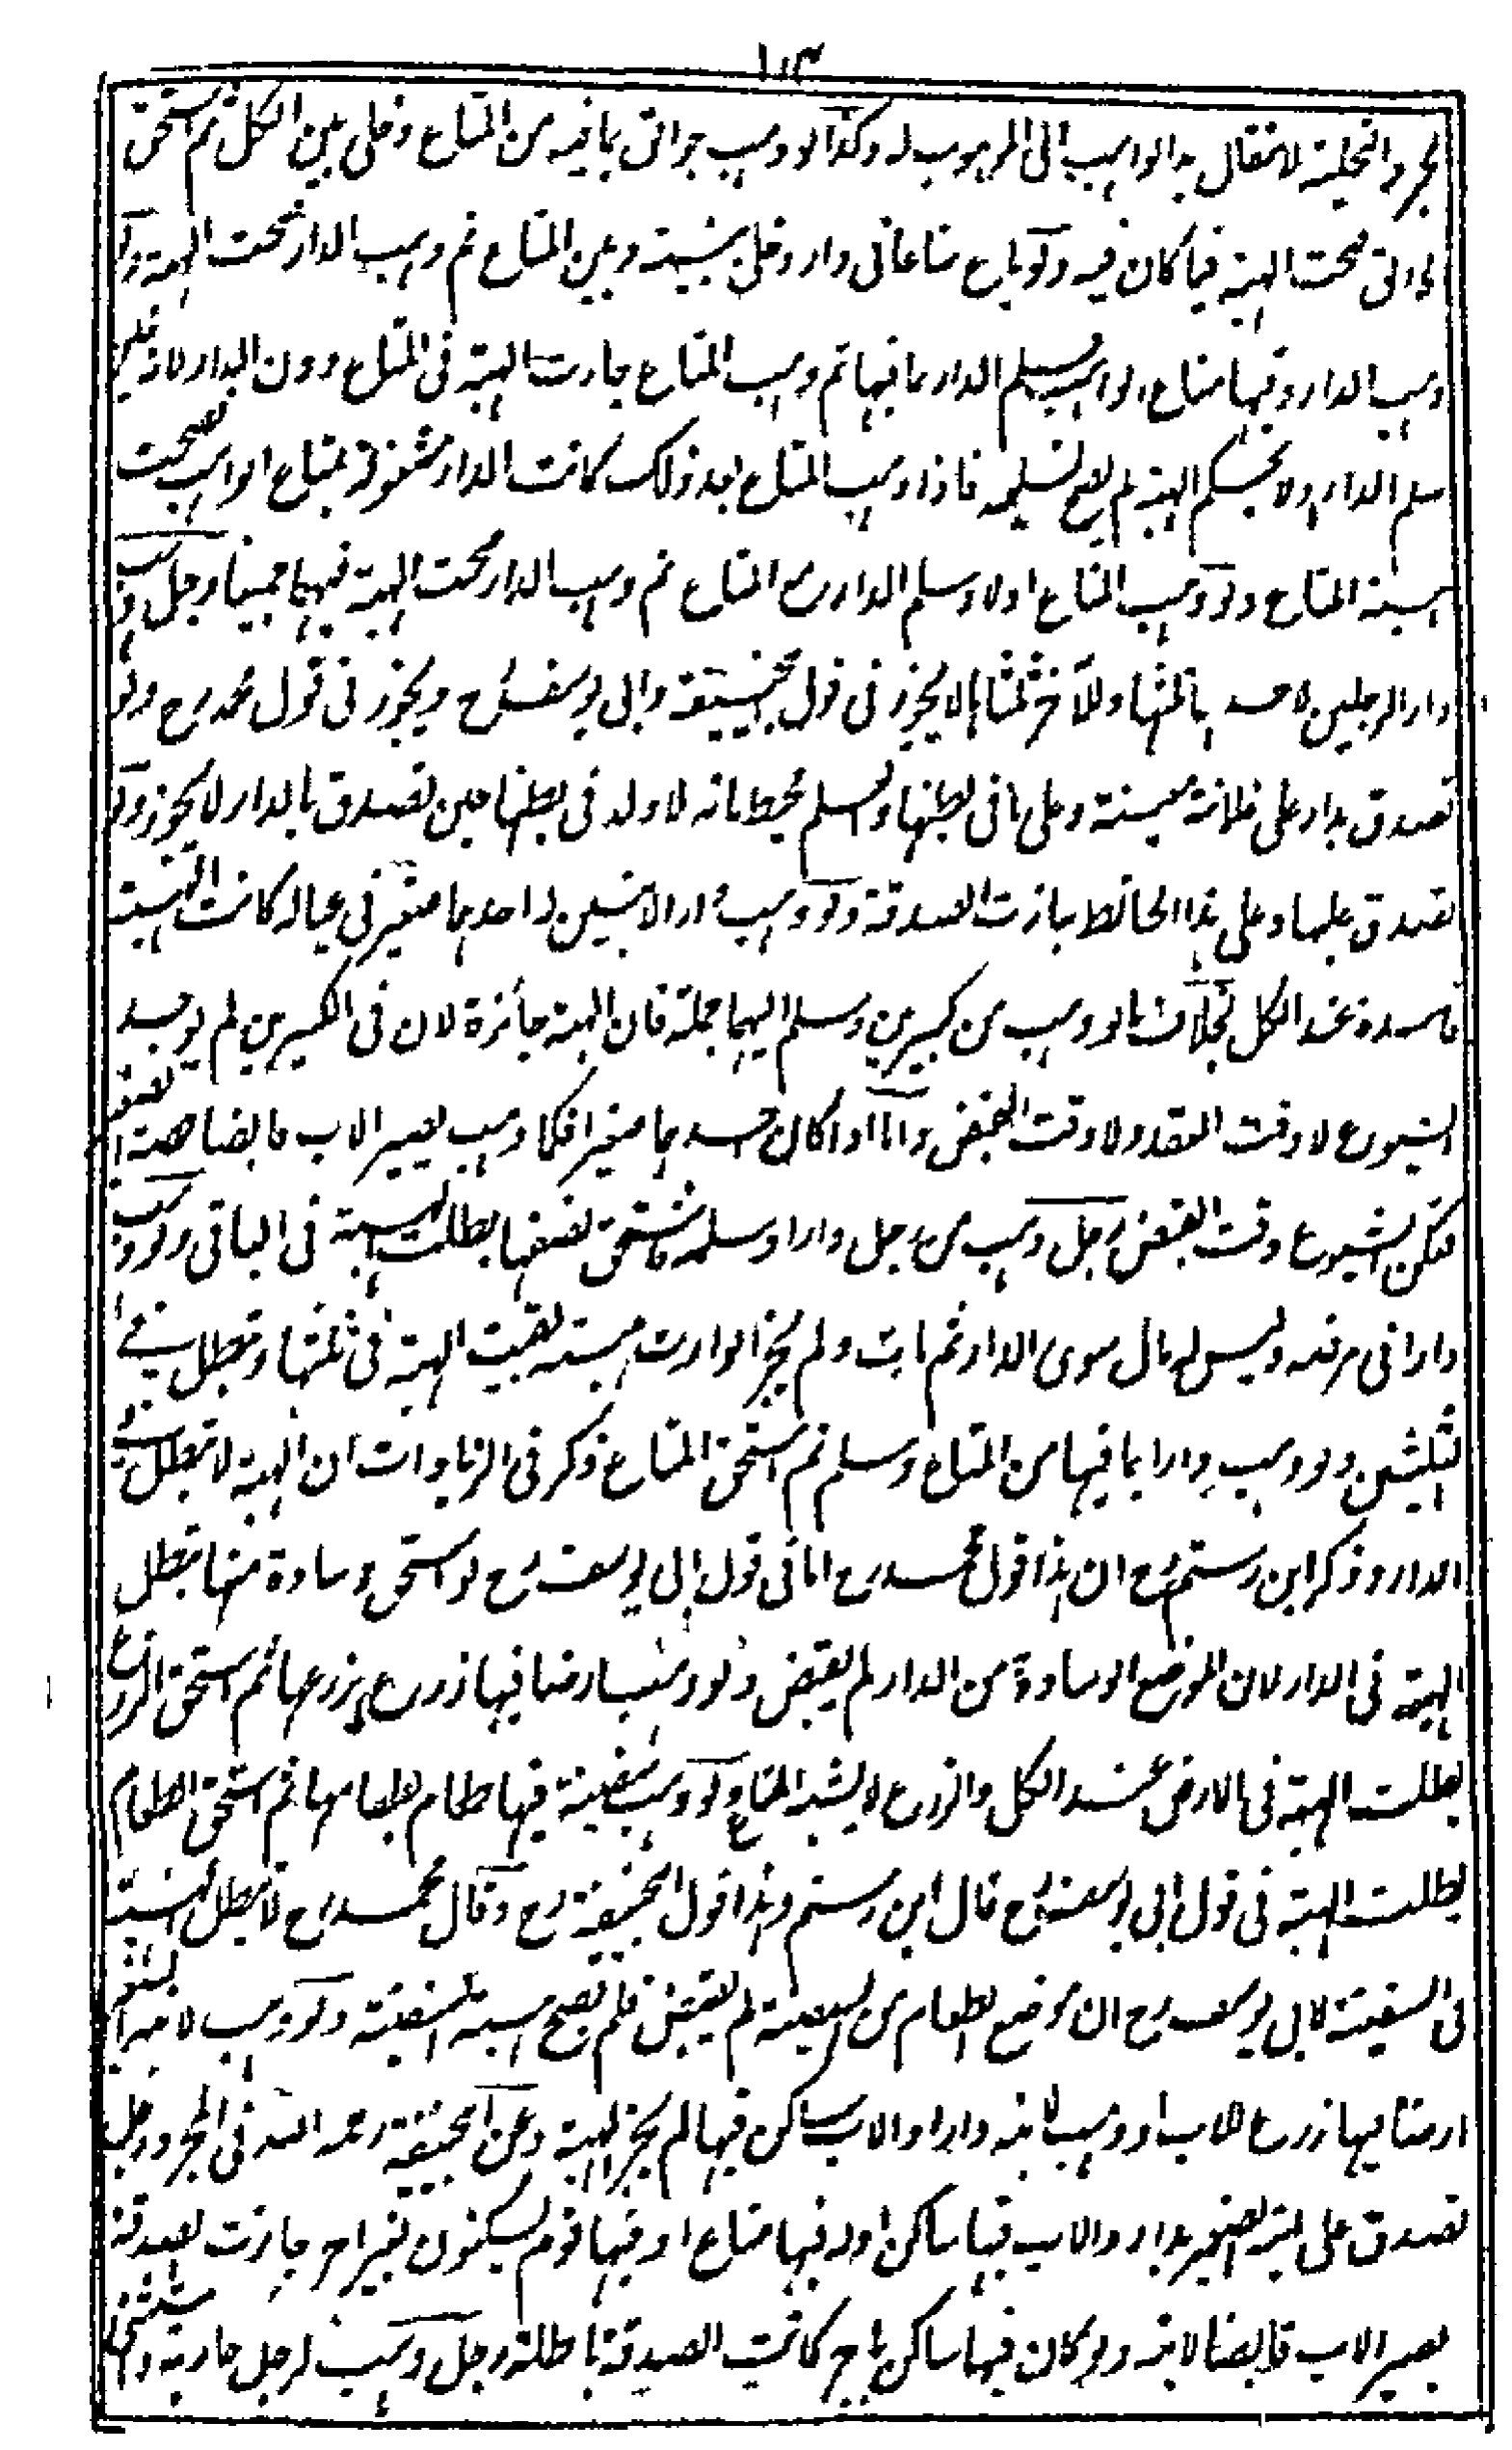 ١١٣
والتخلية لا تنقل يد الواهب الى الموهوب له وكذا لو وهب جوالق بما فيه من المتاع وخلى بين الكل ثم استحق
الجوالق صحت الهبة فيما كان فيه ولو باع متاعا فى دار وخلى بينه وبين المتاع ثم وهب الدار صحت الهبة ولو
وهب الدار وفيها متاع الواهب وسلم الدار بما فيها ثم وهب المتاع جازت الهبة فى المتاع دون الدار لانه حين
سلم الدار اولا بحكم الهبة لم يصح تسليمه فاذا وهب المتاع بعد ذلك كانت الدار مشغولة بمتاع الواهب فصحت
هبة المتاع ولو وهب المتاع اولا وسلم الدار مع المتاع ثم وهب الدار صحت الهبة فيهما جميعا رجل وهب
دارا لرجلين لاحدهما ثلثها وللآخر ثلثاها لا يجوز فى قول ابيحنيفة وابى يوسف رح ويجوز فى قول محمد رح ولو
تصدق بدار على فلانة معينة وعلى ما فى بطنها ولم يسلم لا ولد فى بطنها حين تصدق بالدار لا يجوز ولو
تصدق عليها وعلى هذا الحائط جازت الصدقة ولو وهب دارا لابنين له احدهما صغير فى عياله كانت الهبة
فاسدة عند الكل بخلاف ما لو وهب من كبيرين وسلم اليهما جملة فان الهبة جائزة لان فى الكبيرين لم يوجد
الشيوع لا وقت العقد ولا وقت القبض واما اذا كان احدهما صغيرا فكما وهب يصير الاب قابضا حصة الصغير
فتمكن الشيوع وقت القبض رجل وهب من رجل دارا وسلمها فاستحق نصفها بطلت الهبة فى الباقى ولو وهب
دارا فى مرضه وليس له مال سوى الدار ثم مات ولم يجز الوارث هبته بقيت الهبة فى ثلثها وتبطل فى
الثلثين ولو وهب دارا بما فيها من المتاع وسلم ثم استحق المتاع ذكر فى الزيادات ان الهبة لا تبطل فى
الدار وذكر ابن رستم رح ان هذا قول محمد رح اما فى قول ابى يوسف رح لو استحق وسادة منها تبطل
الهبة فى الدار لان الموضع الوسادة من الدار لم يقبض ولو وهب ارضا فيها زرع بزرعها ثم استحق الزرع
بطلت الهبة فى الارض عند الكل والزرع لا يشبه المتاع ولو وهب سفينة فيها طعام بطعامها ثم استحق الطعام
بطلت الهبة فى قول ابى يوسف رح قال ابن رستم وهذا قول ابيحنيفة رح وقال محمد رح لا تبطل الهبة
فى السفينة لابى يوسف رح ان موضع الطعام من السفينة لم يقبض فلم تصح هبة السفينة ولو وهب لابنه الصغير
ارضا فيها زرع للاب او وهب لابنه دارا والاب ساكن فيها لم يجز الهبة وعن ابيحنيفة رحمه الله فى المجرد رجل
تصدق على ابنه الصغير بدار والاب فيها ساكن او له فيها متاع او فيها قوم يسكنون بغير اجر جازت الصدقة
يصير الاب قابضا لابنه ولو كان فيها ساكن باجر كانت الصدقة باطلة رجل وهب لرجل جارية واستثنى